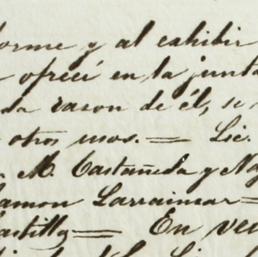 forme y al exhibir
ofrecí en la junta
da razon de él, se
otros usos.= Lic.
M. Castañeda y Ná
amon Larrainzar=
Castillo= En ve